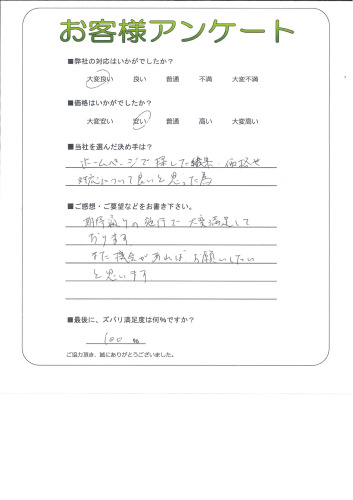 お客様アンケート
■弊社の対応はいかがでしたか？
大変良い　良い　普通　不満　大変不満
■価格はいかがでしたか？
大変安い　安い　普通　高い　大変高い
■当社を選んだ決め手は？
ホームページで探した結果、価格や
対応について良いと思った為
■ご感想・ご要望などをお書き下さい。
期待通りの施行で大変満足して
おります
また機会があればお願いしたい
と思います
■最後に、ズバリ満足度は何%ですか？
100 %
ご協力頂き、誠にありがとうございました。